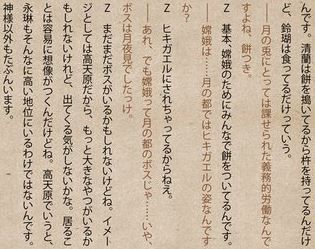 んです。清蘭は餅を搗いてるから杵を持ってるんだけ
ど、鈴瑚は食ってるだけっていう。
――月の兎にとっては課せられた義務的労働なんで
すよね、餅つき。
Z 基本、嫦娥のためにみんなで餅をついてるんです
――嫦娥は……月の都ではヒキガエルの姿なんです
か?
Z ヒキガエルにされちゃってるからねえ。
――あれ、でも嫦娥って月の都のボスじゃ……いや、
ボスは月夜見でしたっけ。
Z まだまだボスがいるかもしれないけどね。イメー
ジとしては高天原だから、もっと大きなやつがいるか
もしれないけれど、出てくる気がしないかな。居るこ
とは容易に想像がつくんだけどね。高天原でいうと、
永琳もそんなに高い地位にいるわけではないんです。
神様以外もたぶんいます。